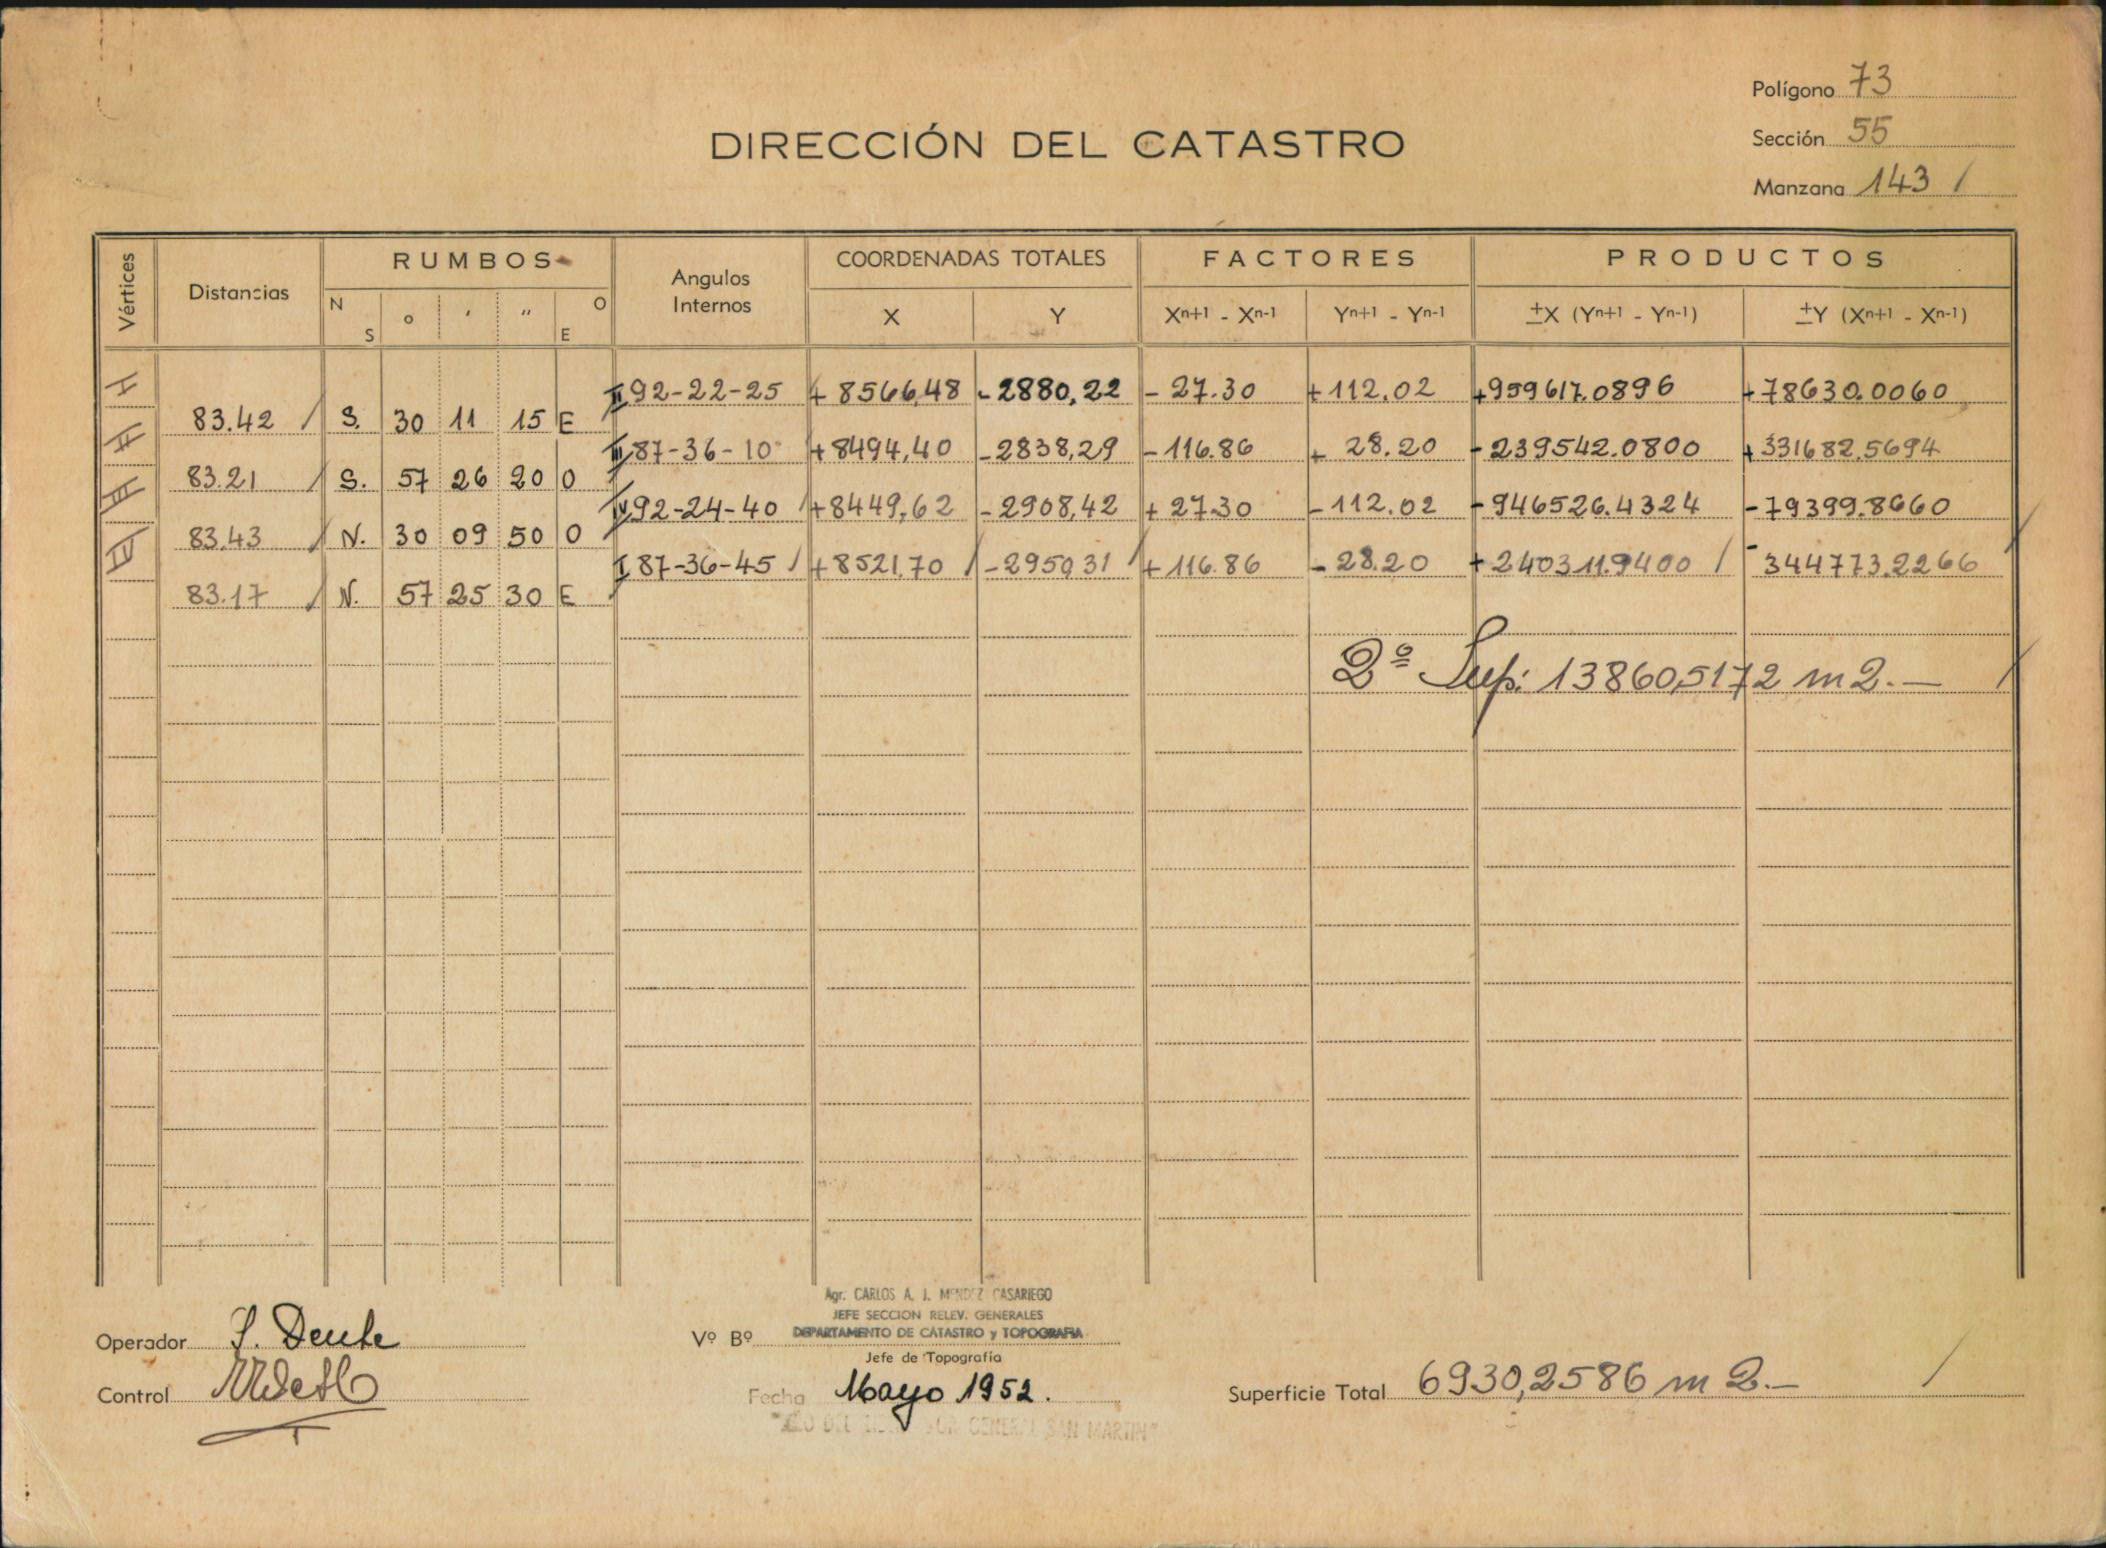 Polígono 73
Sección 55
Manzana 143 /
DIRECCIÓN DEL CATASTRO
Vértices Distancias RUMBOS Angulos Internos COORDENADAS TOTALES FACTORES PRODUCTOS
N S o ' '' O E X Y Xn+1 - Xn-1 Yn+1 - Yn-1 ±X (Yn+1 - Yn-1) ±Y (Xn+1 - Xn-1)
I II 92-22-25 + 8566,48 - 2880,22 - 27.30 + 112.02 +959617.0896 +78630.0060
83.42 / S. 30 11 15 E
II III 87-36-10 +8494,40 -2838,29 -116.86 + 28.20 -239542.0800 +331682.5694
83.21 / S. 57 26 20 O
III IV 92-24-40 +8449,62 -2908,42 + 27.30 -112.02 -946526.4324 -79399.8660
83.43 / N. 30 09 50 O
IV I 87-36-45 / +8521,70 / -2950,31 / + 116.86 - 28.20 +240311.9400 / -344773.2266
83.17 / N. 57 25 30 E
2ª Sup: 13860,5172 m2.— /
Agr. CARLOS A. J. MENDEZ CASARIEGO
JEFE SECCION RELEV. GENERALES
Operador Vº Bº DEPARTAMENTO DE CATASTRO y TOPOGRAFIA
Jefe de Topografía
Control Fecha Mayo 1952. Superficie Total 6930,2586 m2.— /
GENERAL SAN MARTIN"